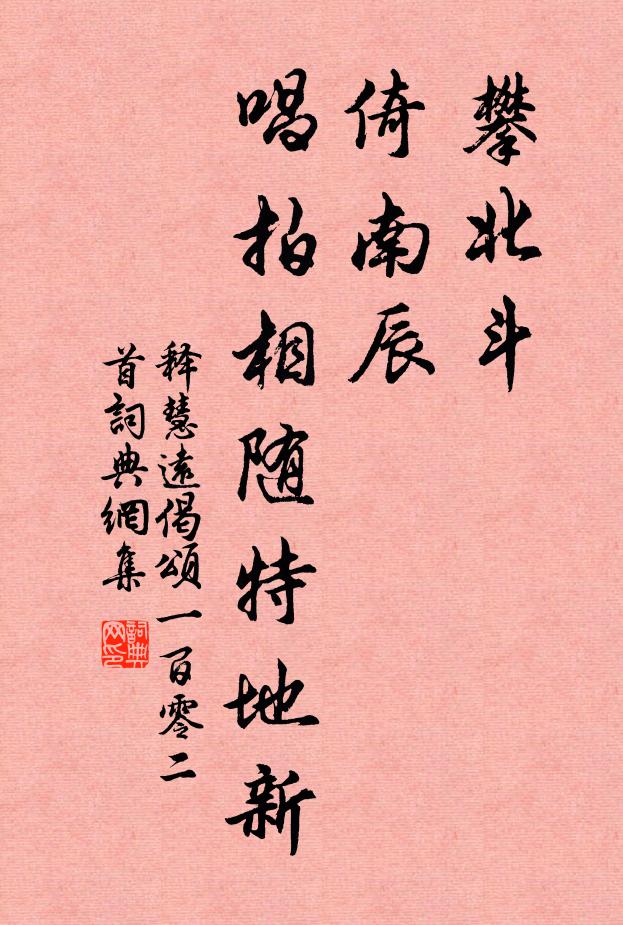 攀北斗
倚南辰
唱拍相随特地新
释慧遠偈頌一百零二
首詞典網集
詞典
网印